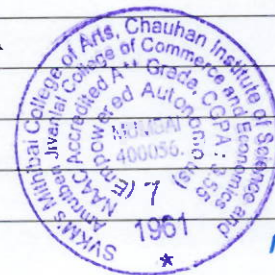 SVKM's Mithibai College of Arts, Chauhan Institute of Science and
Amrutben Jivanlal College of Commerce and Economics
NAAC Accredited A++ Grade, CGPA : 3.55
(Empowered Autonomous)
MUMBAI
400056.
(E) 7
1961
*